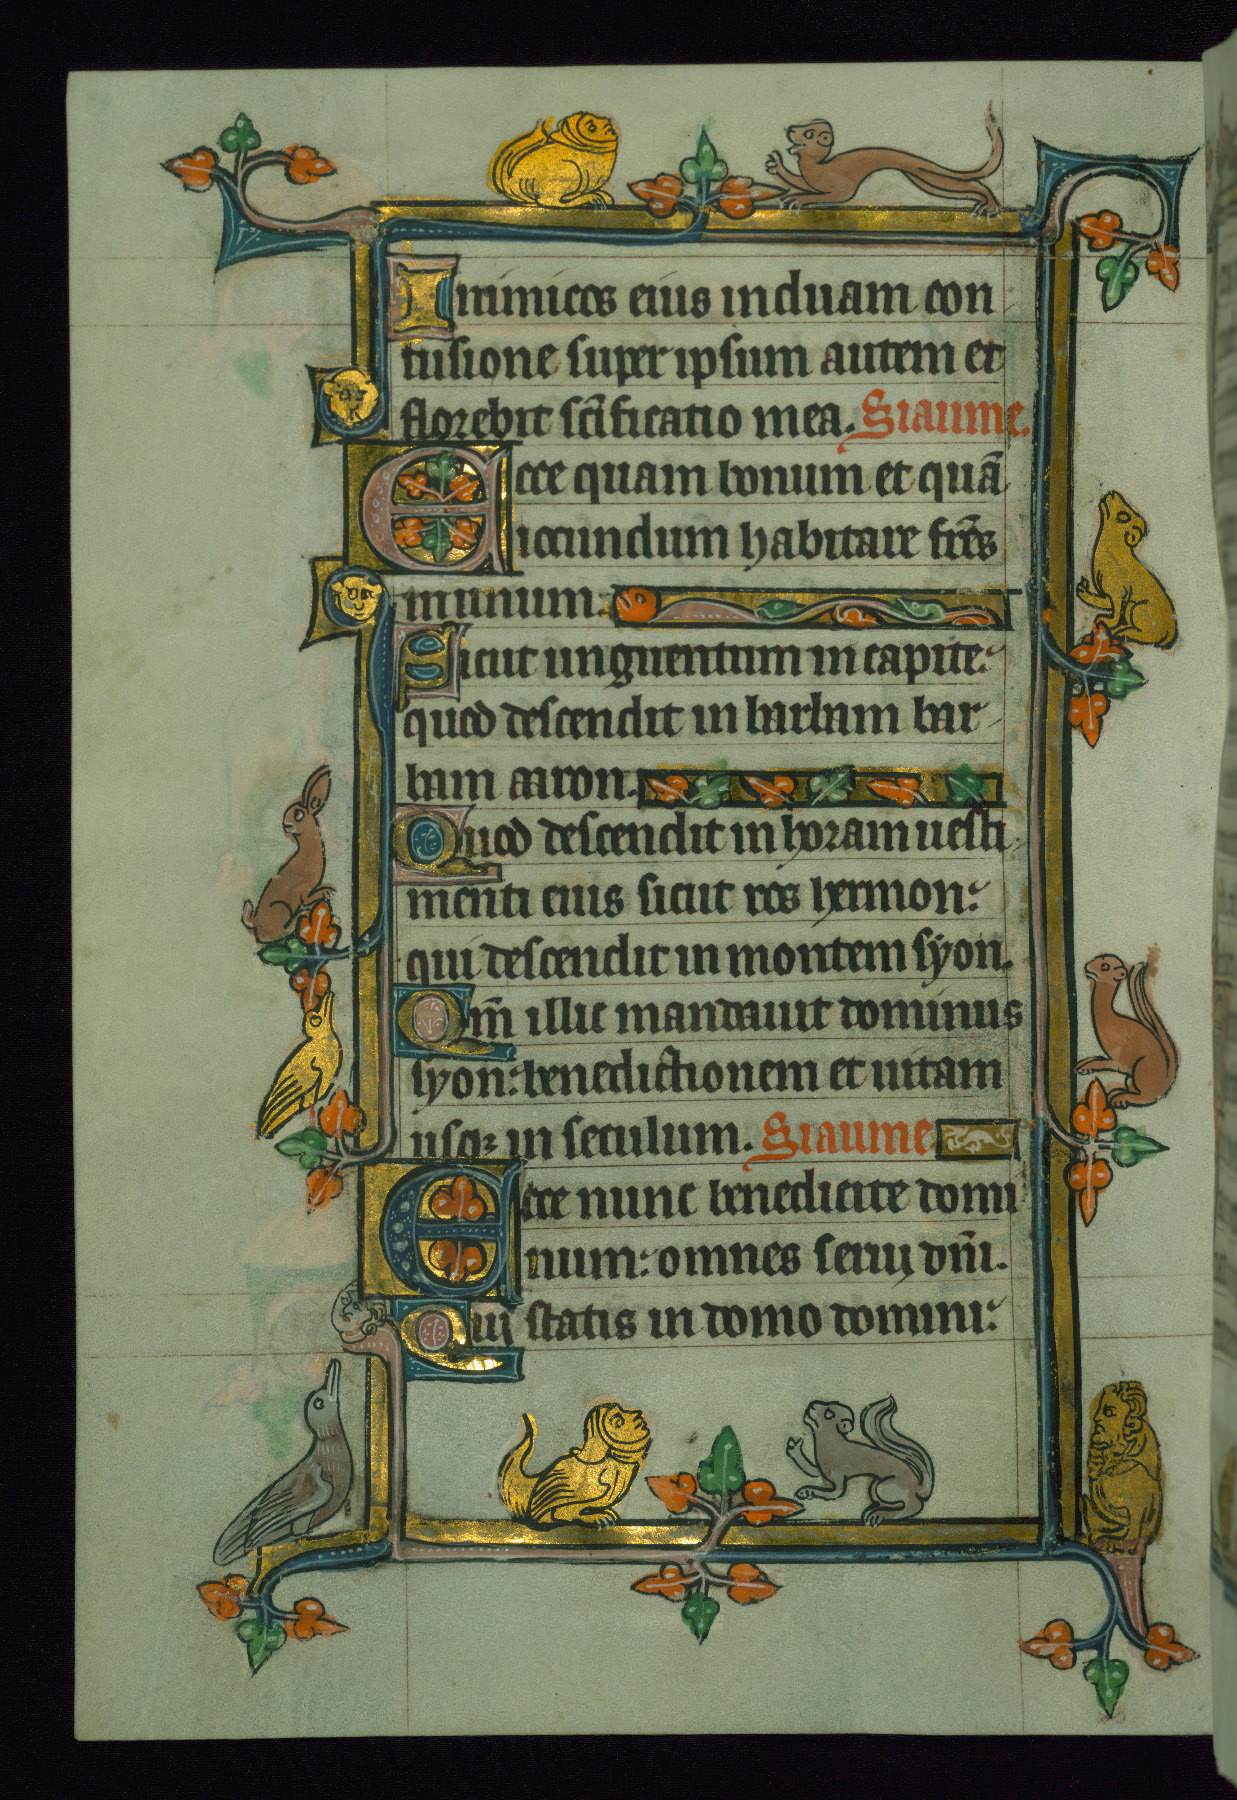 Inimicos eius induam con
fusione super ipsum autem et
florebit scīficatio mea. Siaume.
Ecce quam bonum et quā
iocundum habitare frēs
in unum.
Sicut unguentum in capite:
quod descendit in barbam bar
bam aaron.
Quod descendit in horam uesti
menti eius sicut ros hermon:
qui descendit in montem syon.
Qm̄ illic mandauit dominus
syon: benedictionem et uitam
usqꝫ in seculum. Siaume
Ecce nunc benedicite domi
num: omnes serui dn̄i.
Qui statis in domo domini: